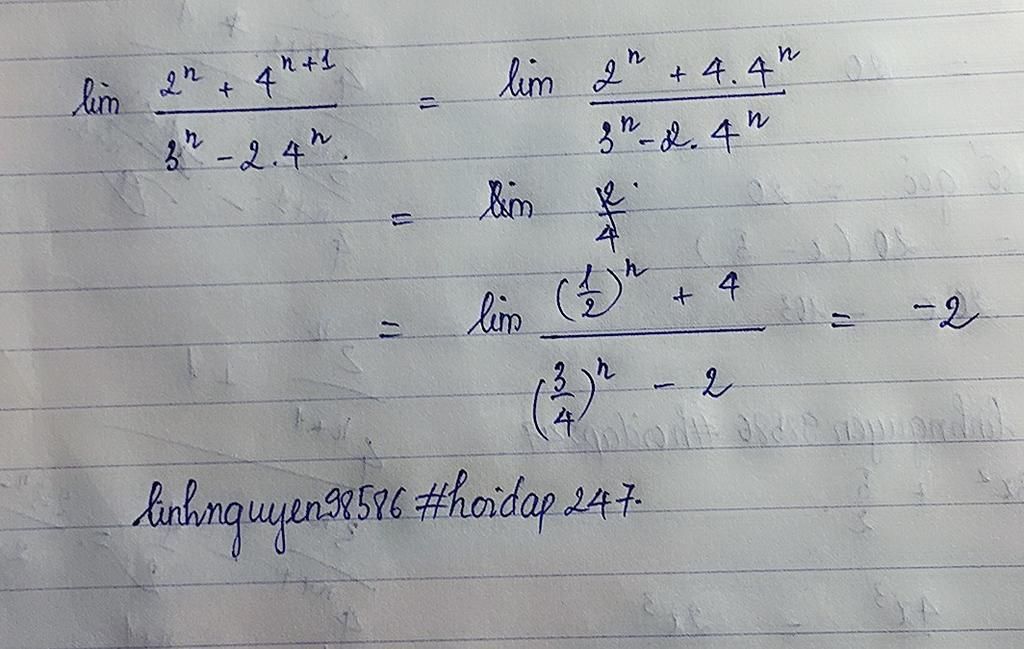 lim (2^n + 4^(n+1)) / (3^n - 2.4^n.) = lim (2^n + 4.4^n) / (3^n - 2.4^n)
= lim
= lim ((1/2)^n + 4) / ((3/4)^n - 2) = -2
linhnguyen98586 #hoidap247.